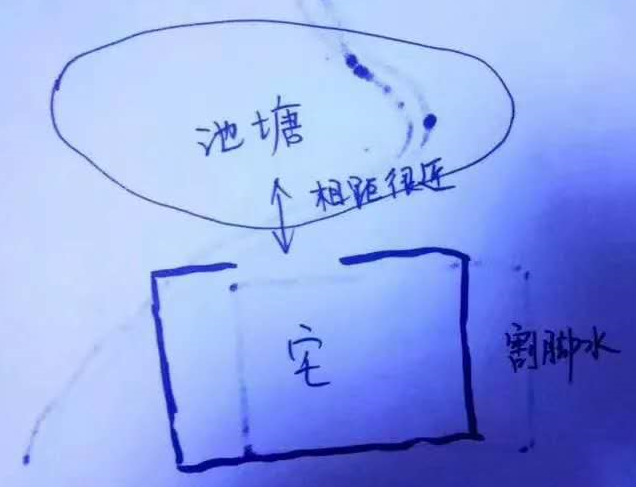 池塘
相距很近
宅
割脚水